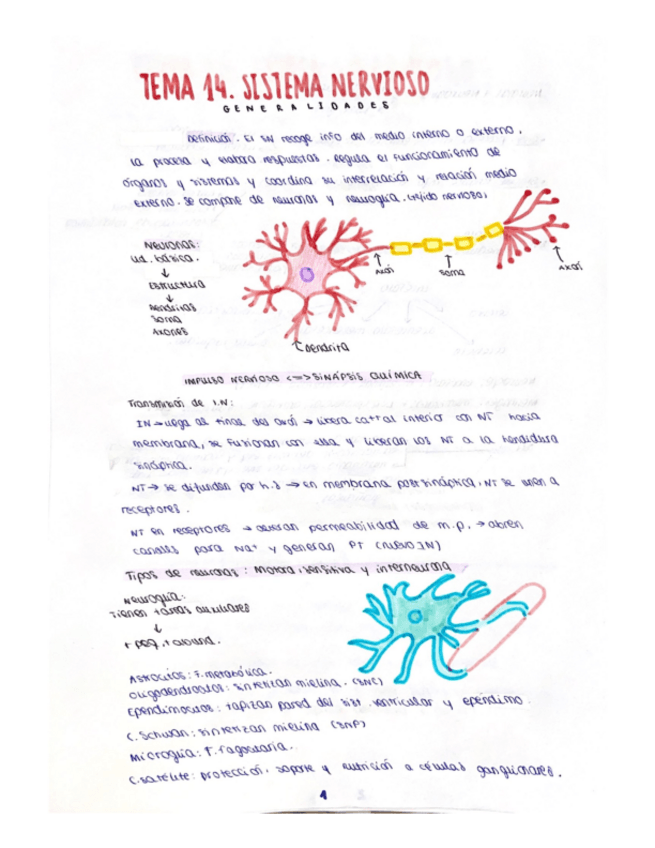 TEMA 14. SISTEMA NERVIOSO
GENERALIDADES
Definición. El SN recoge info del medio interno o externo,
la procesa y elabora respuestas. regula el funcionamiento de
órganos y sistemas y coordina su interrelación y relación medio
externo. Se compone de neuronas y neuroglia. (tejido nervioso)
Neuronas:
ud. básica.
↓
Estructura
↓
Dendritas
Soma
Axones
Axón
Soma
Axón
Dendrita
IMPULSO NERVIOSO <=> SINAPSIS QUÍMICA
Transmisión de I.N:
IN → llega al final del axón → libera ca++ al interior con NT hacia
membrana, se fusionan con ella y liberan los NT a la hendidura
sináptica.
NT → se difunden por h.s → en membrana postsináptica, NT se unen a
receptores.
NT en receptores → alteran permeabilidad de m.p. → abren
canales para Na+ y generan PT (nuevo IN)
Tipos de neuronas: Motora, sensitiva y interneurona
Neuroglia:
Tienen tareas auxiliares
↓
+ peq. + abund.
Astrocitos: F. metabólica.
Oligodendrocitos: sintetizan mielina. (SNC)
Ependimocitos: tapizan pared del sist. ventricular y epéndimo.
C. Schwan: sintetizan mielina (SNP)
Microglía: f. fagocitaria.
C. satélite: protección, soporte y nutrición a células ganglionares.
1